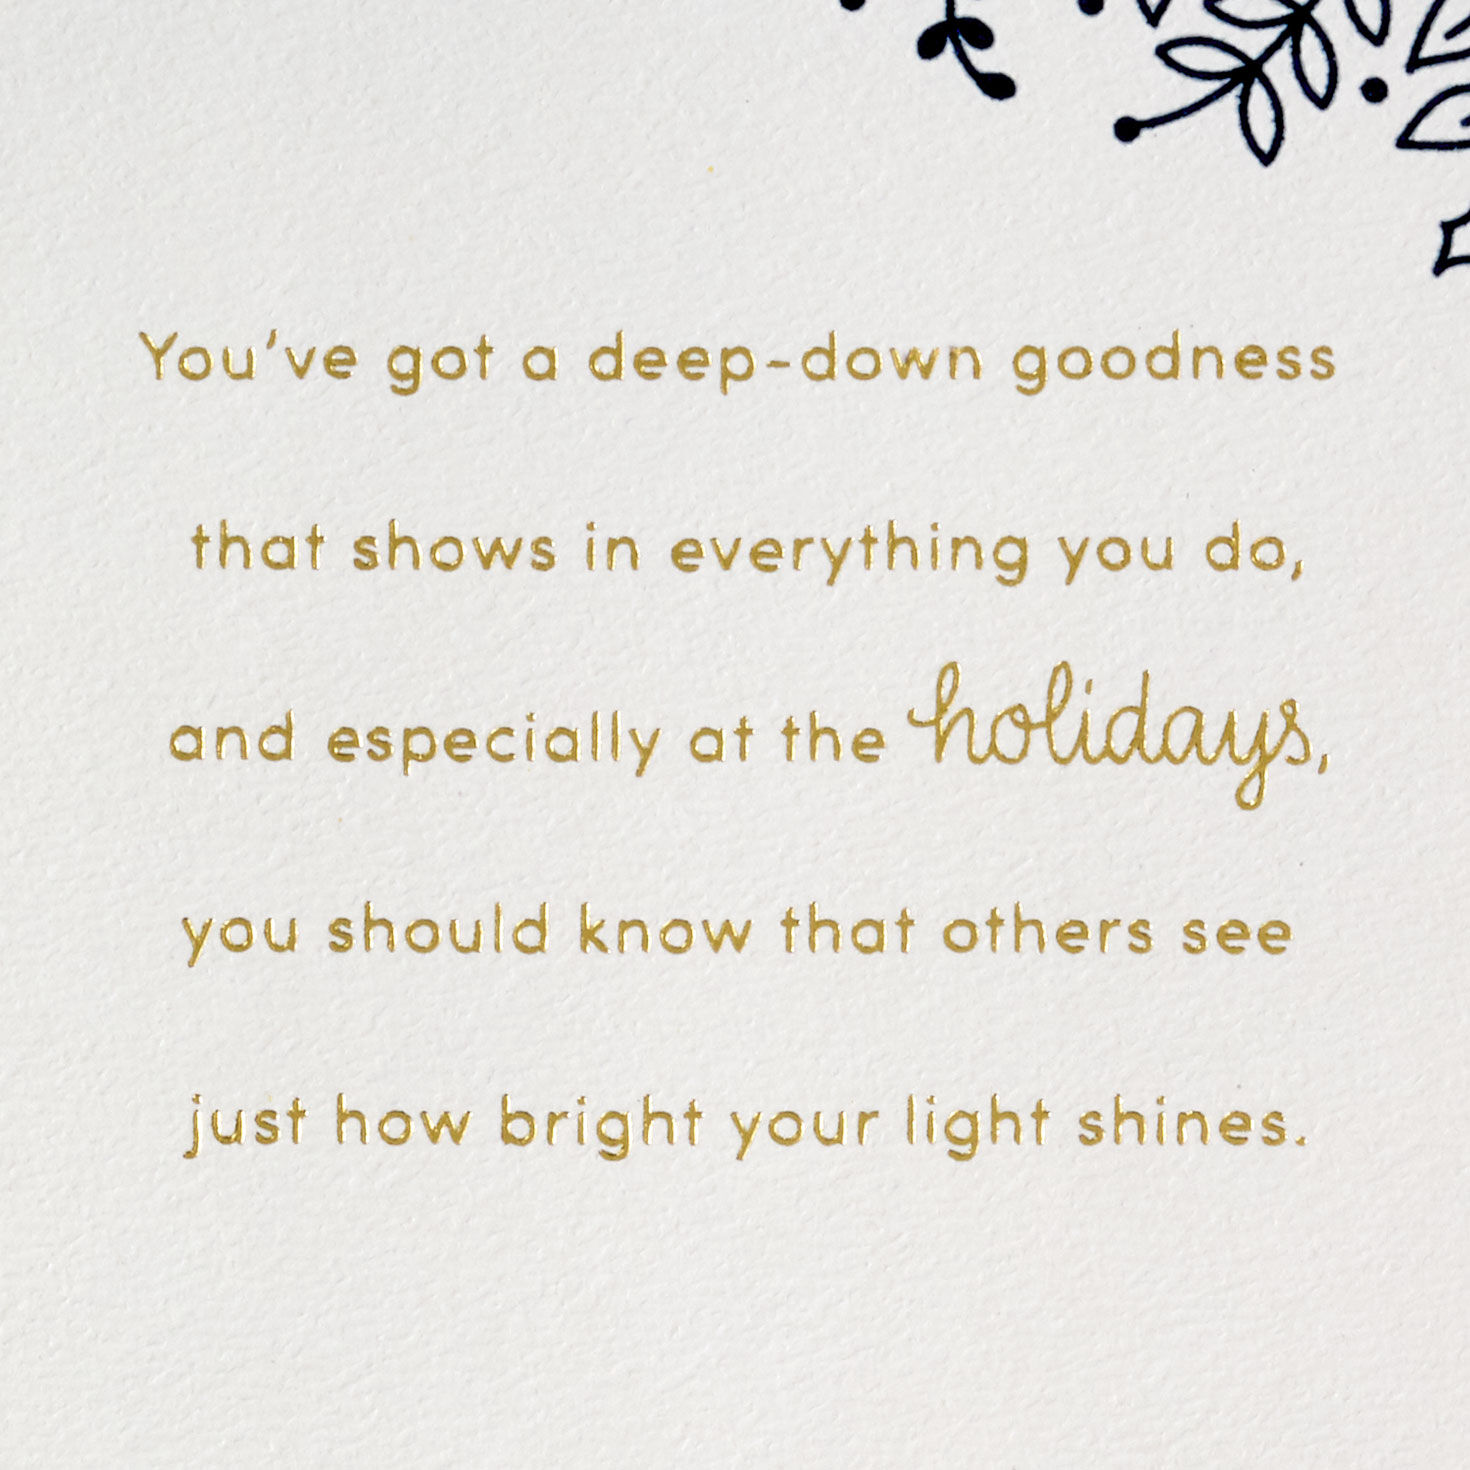 You've got a deep-down goodness
that shows in everything you do,
and especially at the holidays,
you should know that others see
just how bright your light shines.